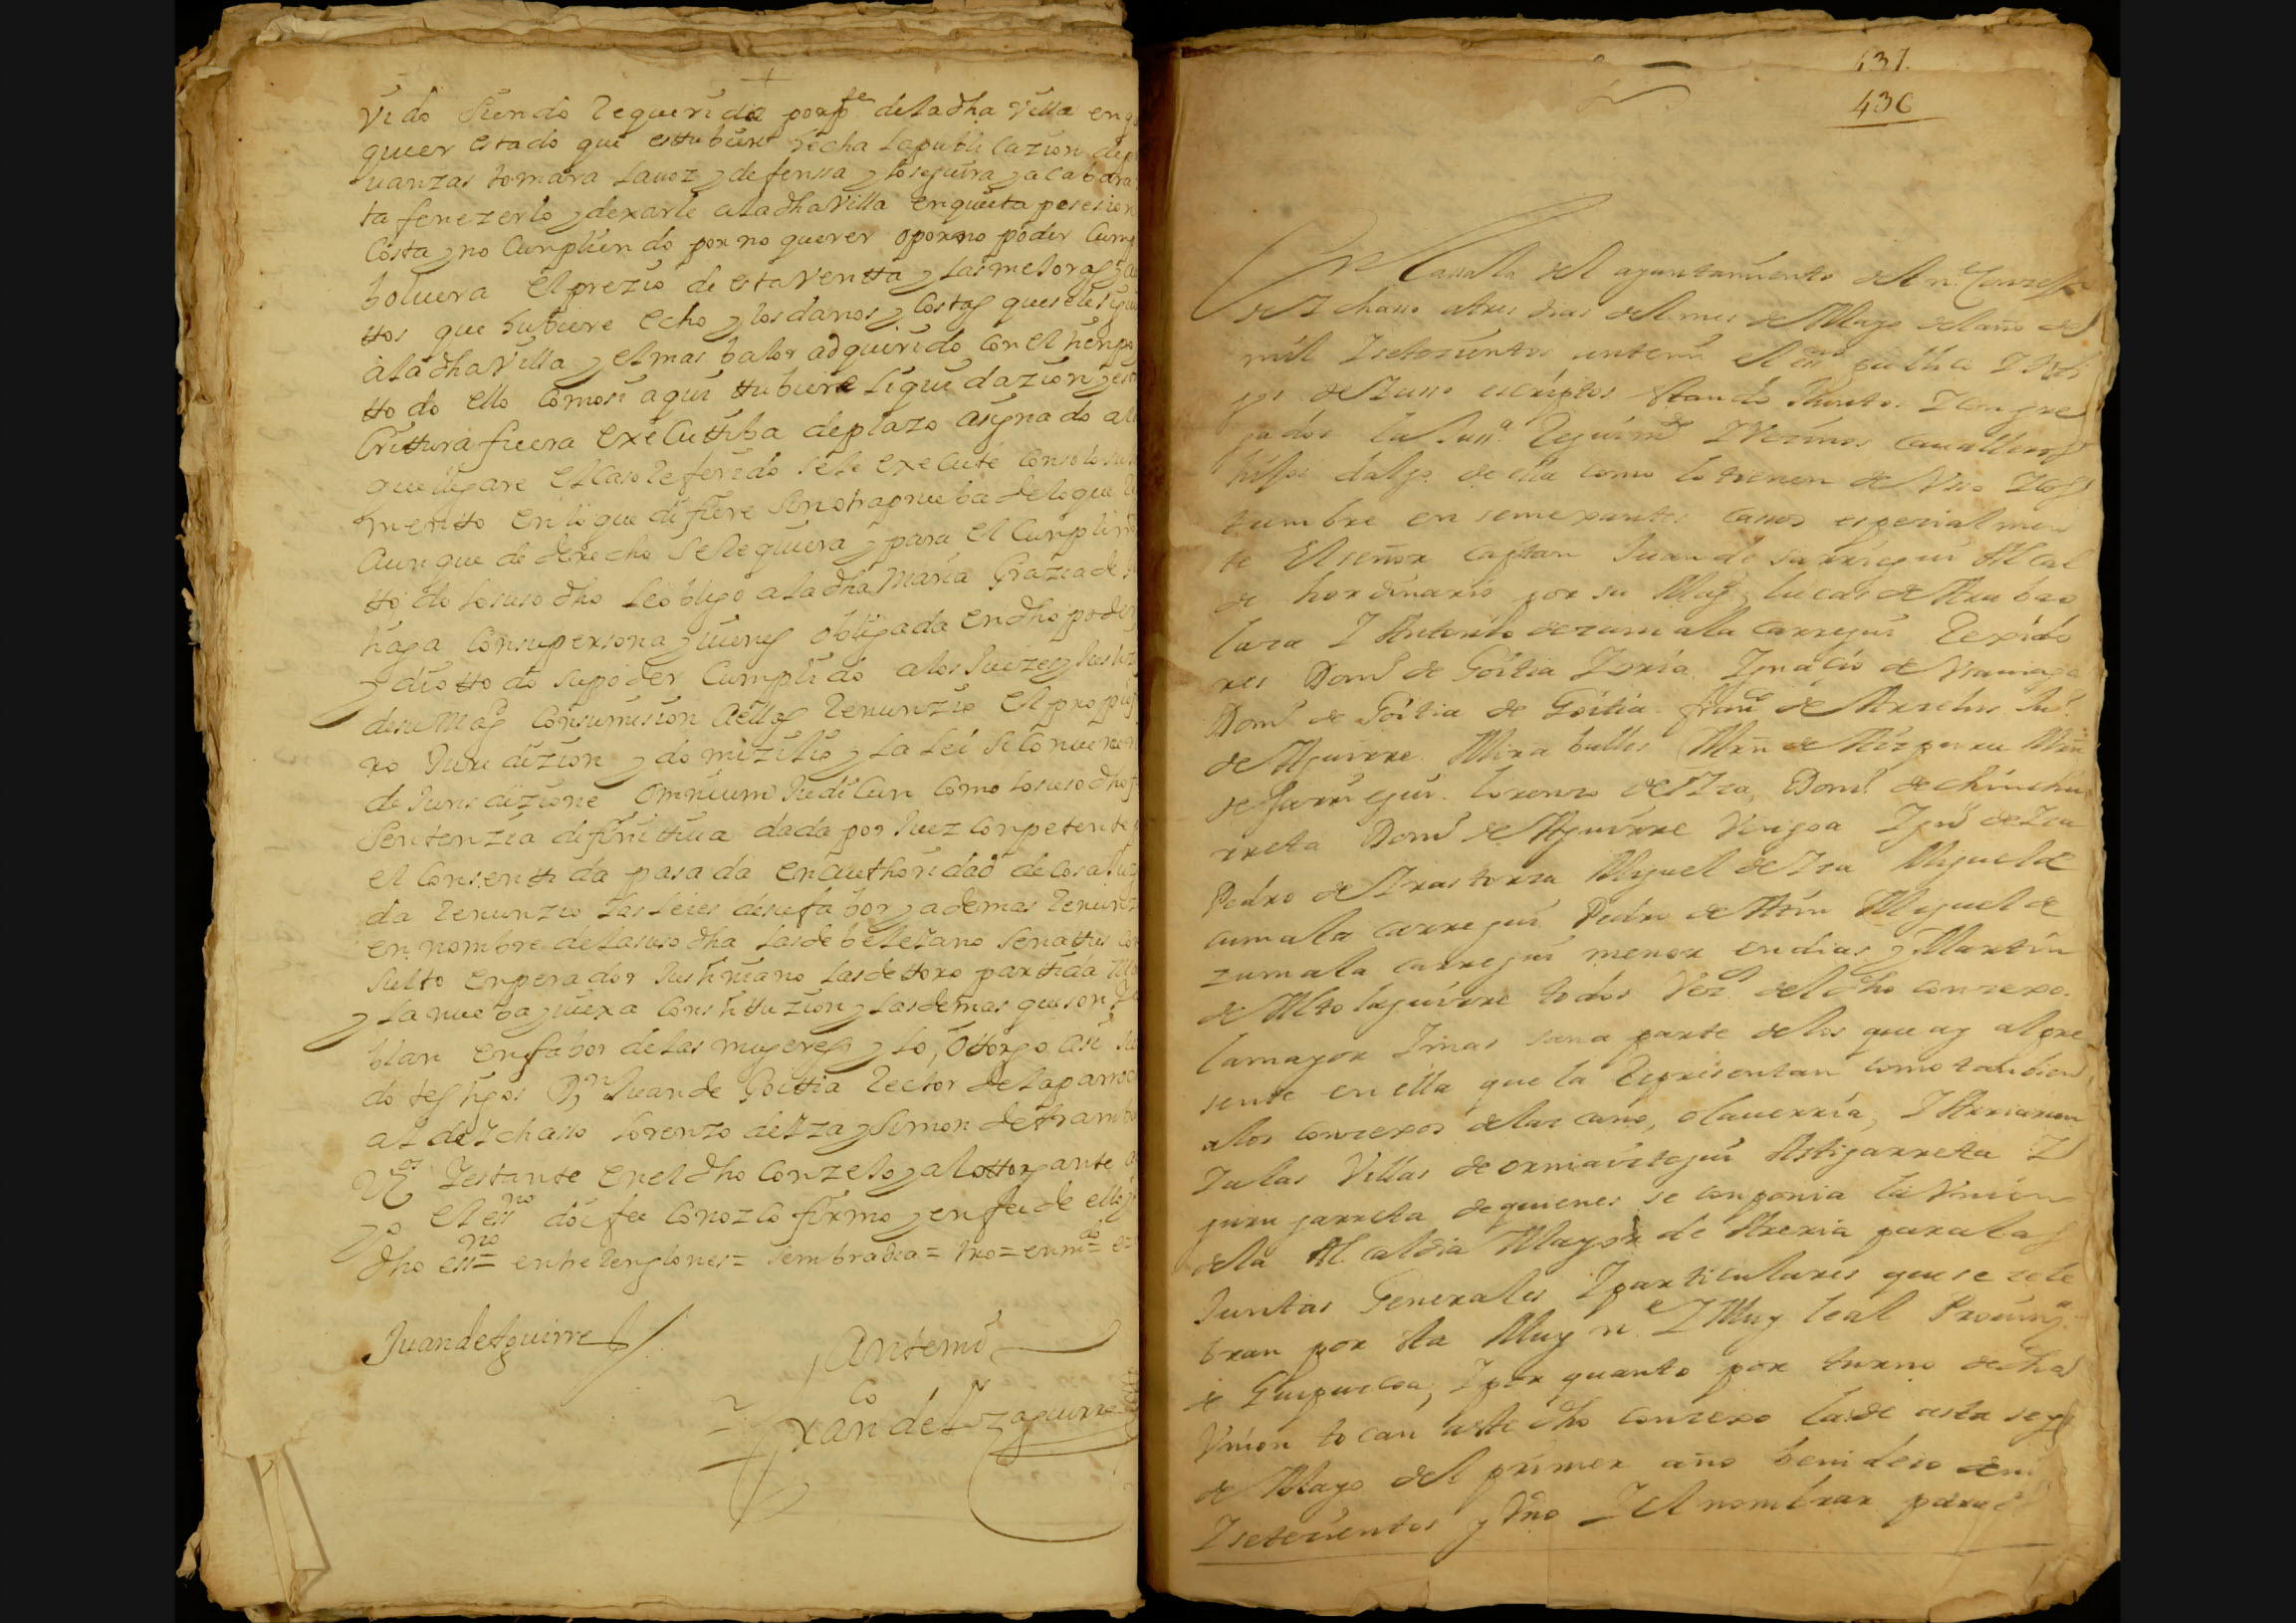 vido siendo requerida por pte de la dha villa en q
quier estado que esttubiere hecha la publicazion de p
uanzas tomara la uoz y defenssa y lo seguira y acabara
ta fenezerlo y dexarle a la dha Villa en quieta posesion
Costa y no Cunpliendo por no querer o por no poder Cump
boluera el prezio de esta Ventta y las mejoras y
ttos que hubiere echo y los danos y costas que se le sigui
a la dha Villa y el mas balor adquirido con el tienpo
ttodo ello como si aqui ttubiera liquidazion y es
Crittura fuera executtiba de plazo asignado al
que llegare el caso referido se le execute con solo su
mentto en lo que difiere sin otra prueba de lo que
Aunque de derecho se requiera y para el cunplim
ttodo lo suso dho le obligo a la dha Maria Grazia de
haga con su persona y uienes obligada en dho poder
y dio ttodo su poder Cumplido a los Juezes y Justiz
de su Magd con sumision a ellos renunzio el propio
ro Jurisdizion y domizilio y la lei si Conuenerit
de Jurisdizione omnium Judicun como lo suso dho f
Sentenzia difinittiua dada por Juez conpetente
el consenttida pasada en authoridad de cosa Juzg
da renunzio las leies de su fabor y ademas renunz
en nombre de la suso dha las de beleiano senattus con
sulto enperador Justiniano las de ttoro parttida
y la nueba y uiexa consttituzion y las demas que son
blan en fabor de las mugeres y lo ottorgo asi
do testigos Dn Juan de Goittia rector de la parroch
al de Ichasso Lorenzo de Izа y Simon de
Vos y estante en el dho conzejo y al ottorgante
yo el essno doi fee conozco firmo y en fee de ello y
dho essno = entre renglones = sembradia = tro = enmdo =
Juan de Aguirre
Ante mi
Franco de Lizaguirre
437
436
En la sala del ayuntamiento del n.e Conzejo
de Ichasso a tres dias del mes de Mayo del año de
mill Y setezientos ante mi el essno publico Y testi
gos de Iusso escriptos estando Juntos Y congre
gados la Jusa. Regimto Y Vezinos Caualleros
hijos dalgo de ella como lo tienen de Vsso Y cos
tumbre en semexantes cassos espezialmen
te El señor Capitan Juan de Jaurregui Alcal
de hordinario por su Magd Lucas de Arabao
laza Y Antonio de zumala carregui Rexido
res Domo de Goitia Ignacio de
Domo de Goitia de Goitia franco de
de Aguirre Mirabulles Mrn de Aizpuru Mrn
de Jaurregui Lorenzo de Iza Domo de Chinchu
rreta Domo de Aguirre Vengoa Igno de
Pedro de Irastorza Miguel de Iza Miguel de
cumala carregui Pedro de Miguel de
zumala carregui menor en dias y Martin
de Altolaguirre todos Vezs del dho conzexo
la mayor Y mas sana parte de los que ay al pre
sente en ella que la Representan como tambien
a los conzexos de lazcano, olauerria, Y Arriaran
Y a las Villas de ormaiztegui Astigarreta Y
guru garreta de quienes se conponia la Vnion
de la Alcaldia Mayor de Areria para las
Juntas Generales Y particulares que se zele
bran por esta Muy n.e Y Muy leal Prouinza
de Guipuzcoa, Y por quanto por turno de dha
Vnion tocan a este dho conzexo las de asta
de Mayo del primer año benidero de mill
Y setezientos y Vno Y el nombrar para